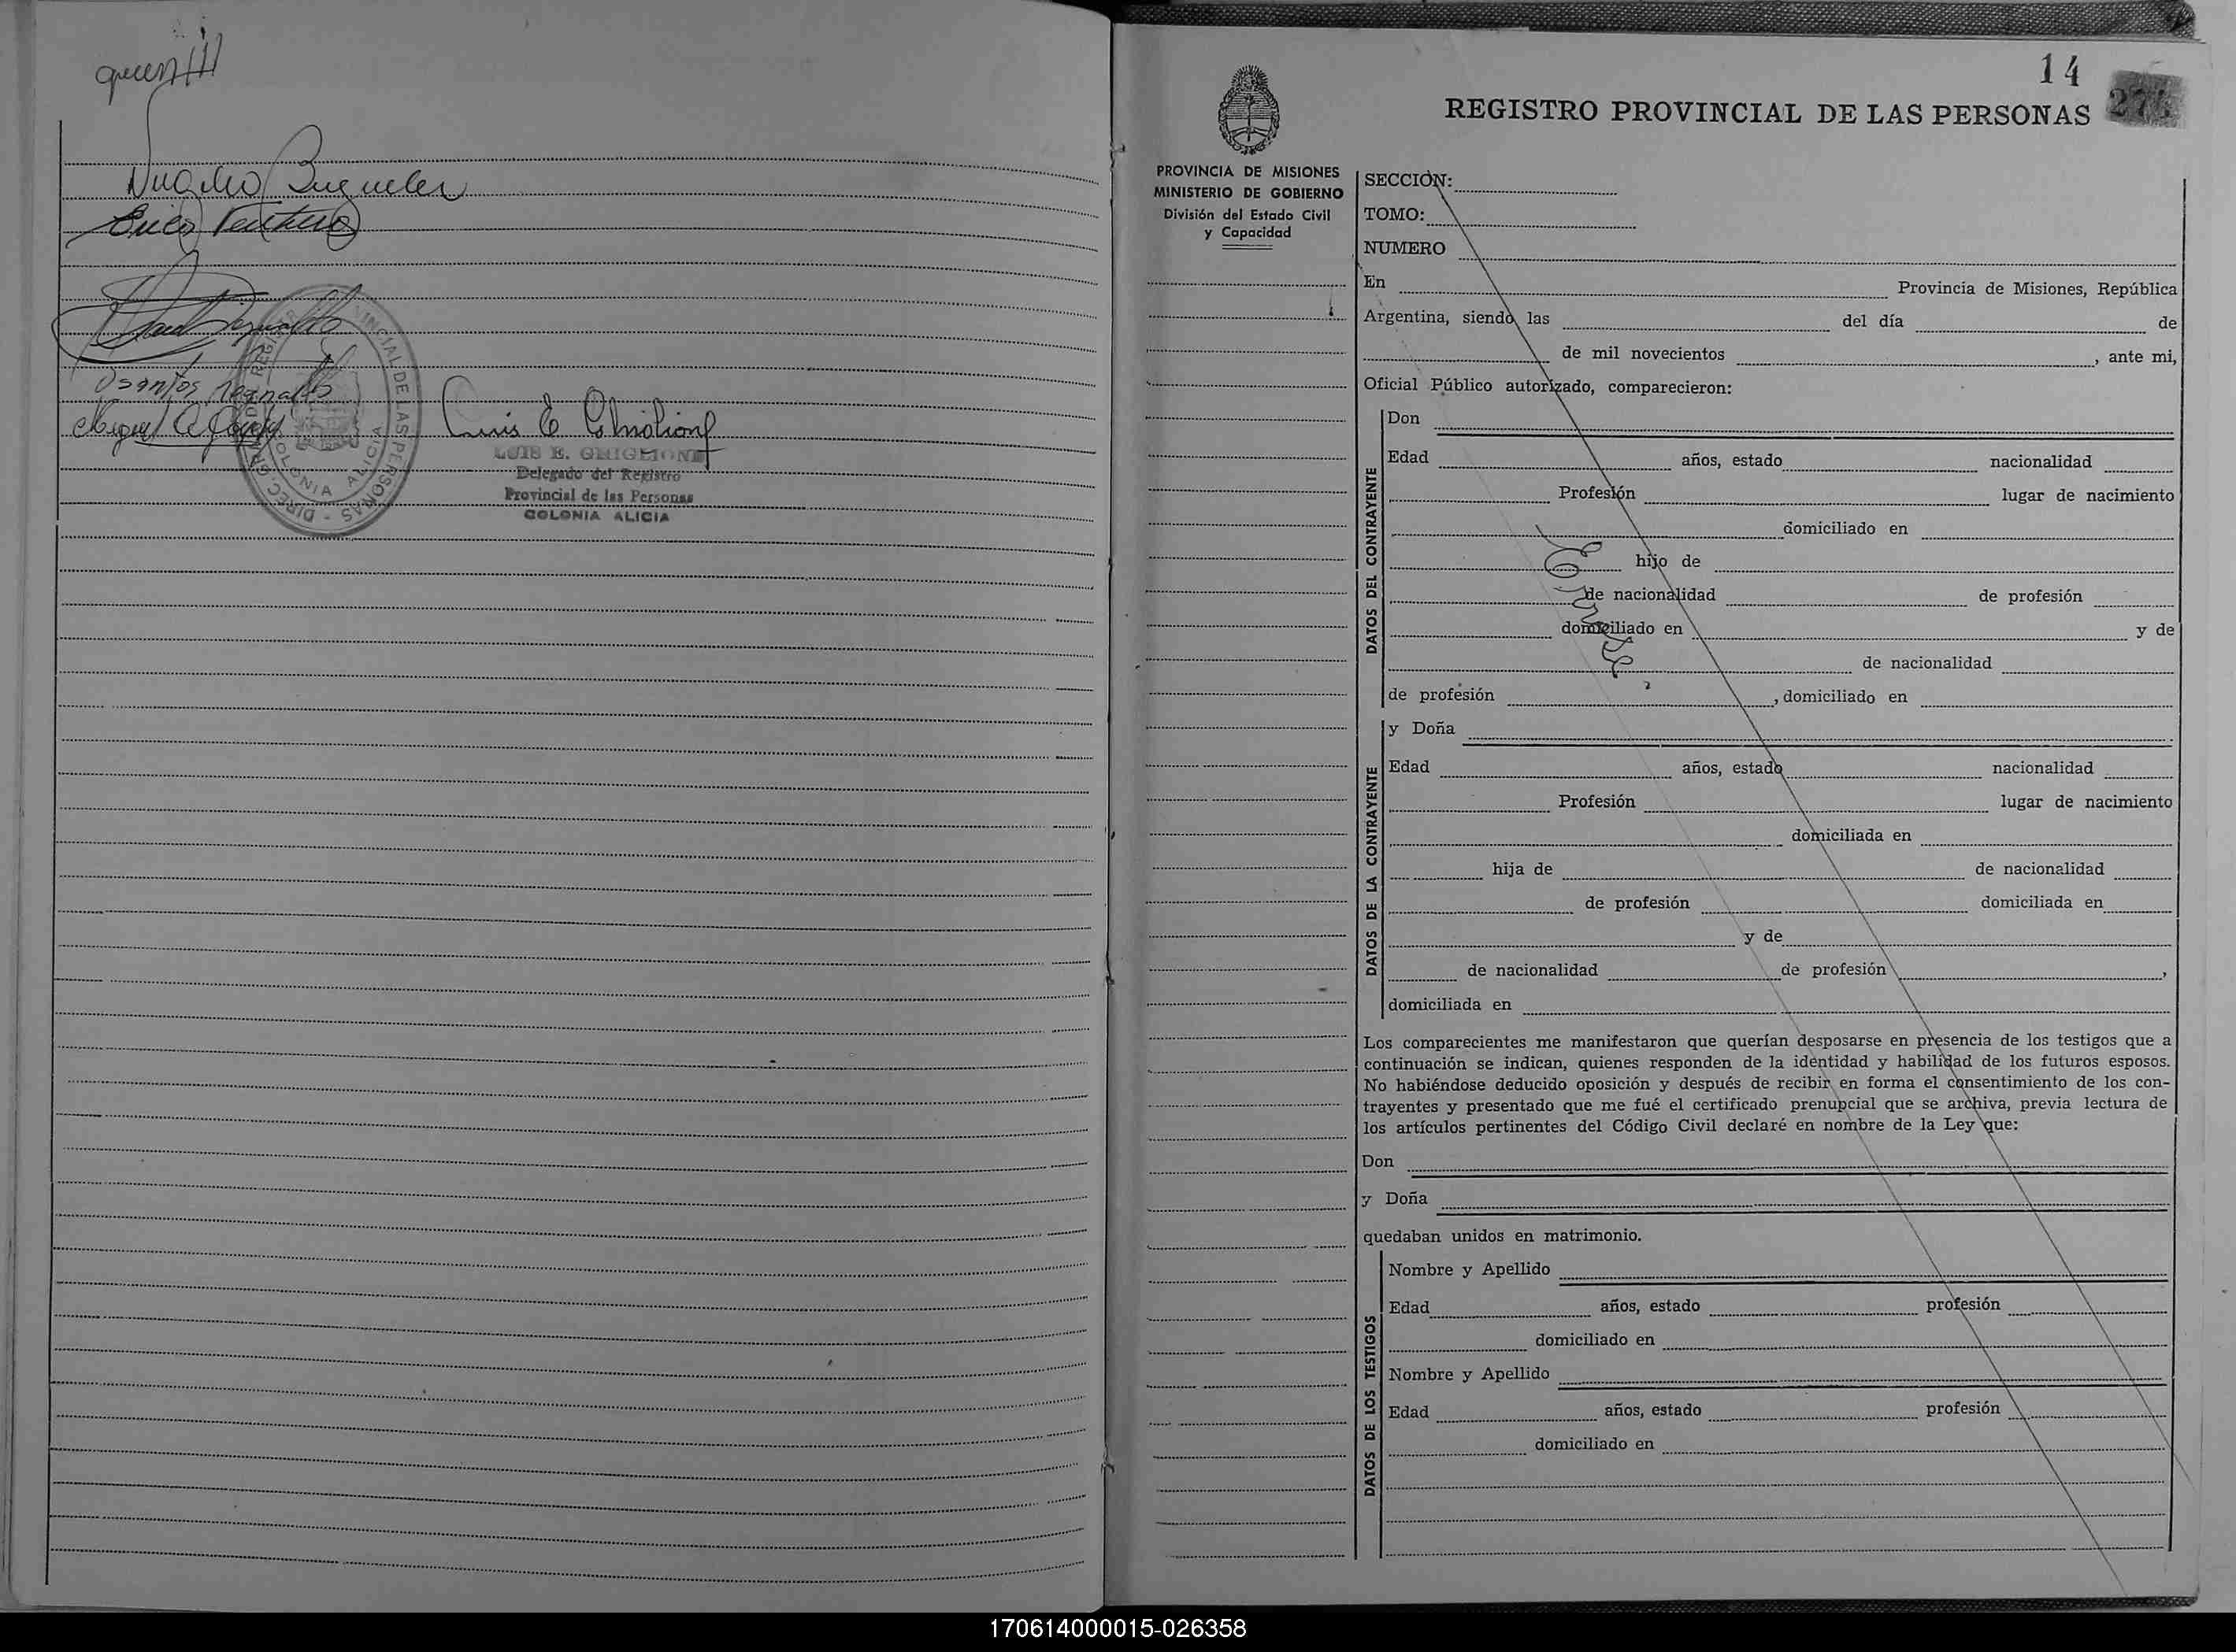 REGISTRO PROVINCIAL DE LAS PERSONAS
COLONIA ALICIA
LUIS E. GHIGLIONE
Delegado del Registro
Provincial de las Personas
COLONIA ALICIA
14
REGISTRO PROVINCIAL DE LAS PERSONAS
PROVINCIA DE MISIONES
MINISTERIO DE GOBIERNO
División del Estado Civil
y Capacidad
SECCIÓN:
TOMO:
NUMERO
En Provincia de Misiones, República
Argentina, siendo las del día de
de mil novecientos , ante mi,
Oficial Público autorizado, comparecieron:
DATOS DEL CONTRAYENTE
Don
Edad años, estado nacionalidad
Profesión lugar de nacimiento
domiciliado en
hijo de
de nacionalidad de profesión
domiciliado en y de
de nacionalidad
de profesión , domiciliado en
DATOS DE LA CONTRAYENTE
y Doña
Edad años, estado nacionalidad
Profesión lugar de nacimiento
domiciliada en
hija de de nacionalidad
de profesión domiciliada en
y de
de nacionalidad de profesión ,
domiciliada en
Los comparecientes me manifestaron que querían desposarse en presencia de los testigos que a
continuación se indican, quienes responden de la identidad y habilidad de los futuros esposos.
No habiéndose deducido oposición y después de recibir en forma el consentimiento de los con-
trayentes y presentado que me fué el certificado prenupcial que se archiva, previa lectura de
los artículos pertinentes del Código Civil declaré en nombre de la Ley que:
Don
y Doña
quedaban unidos en matrimonio.
DATOS DE LOS TESTIGOS
Nombre y Apellido
Edad años, estado profesión
domiciliado en
Nombre y Apellido
Edad años, estado profesión
domiciliado en
170614000015-026358